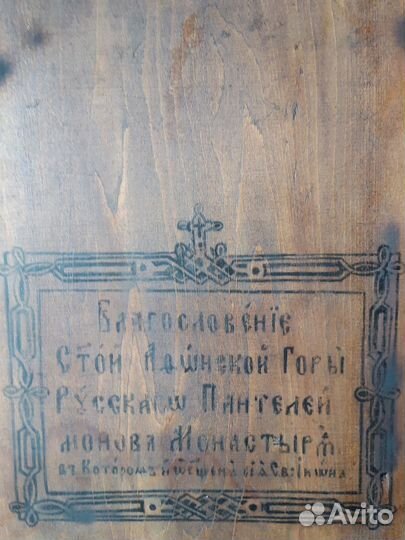 Благословéнїе
Ст҃óи Аѳѡ́нской Горы̀
Рýсскагѡ Пантелей
монова Монастырѧ̀
въ Которомъ и
Avito